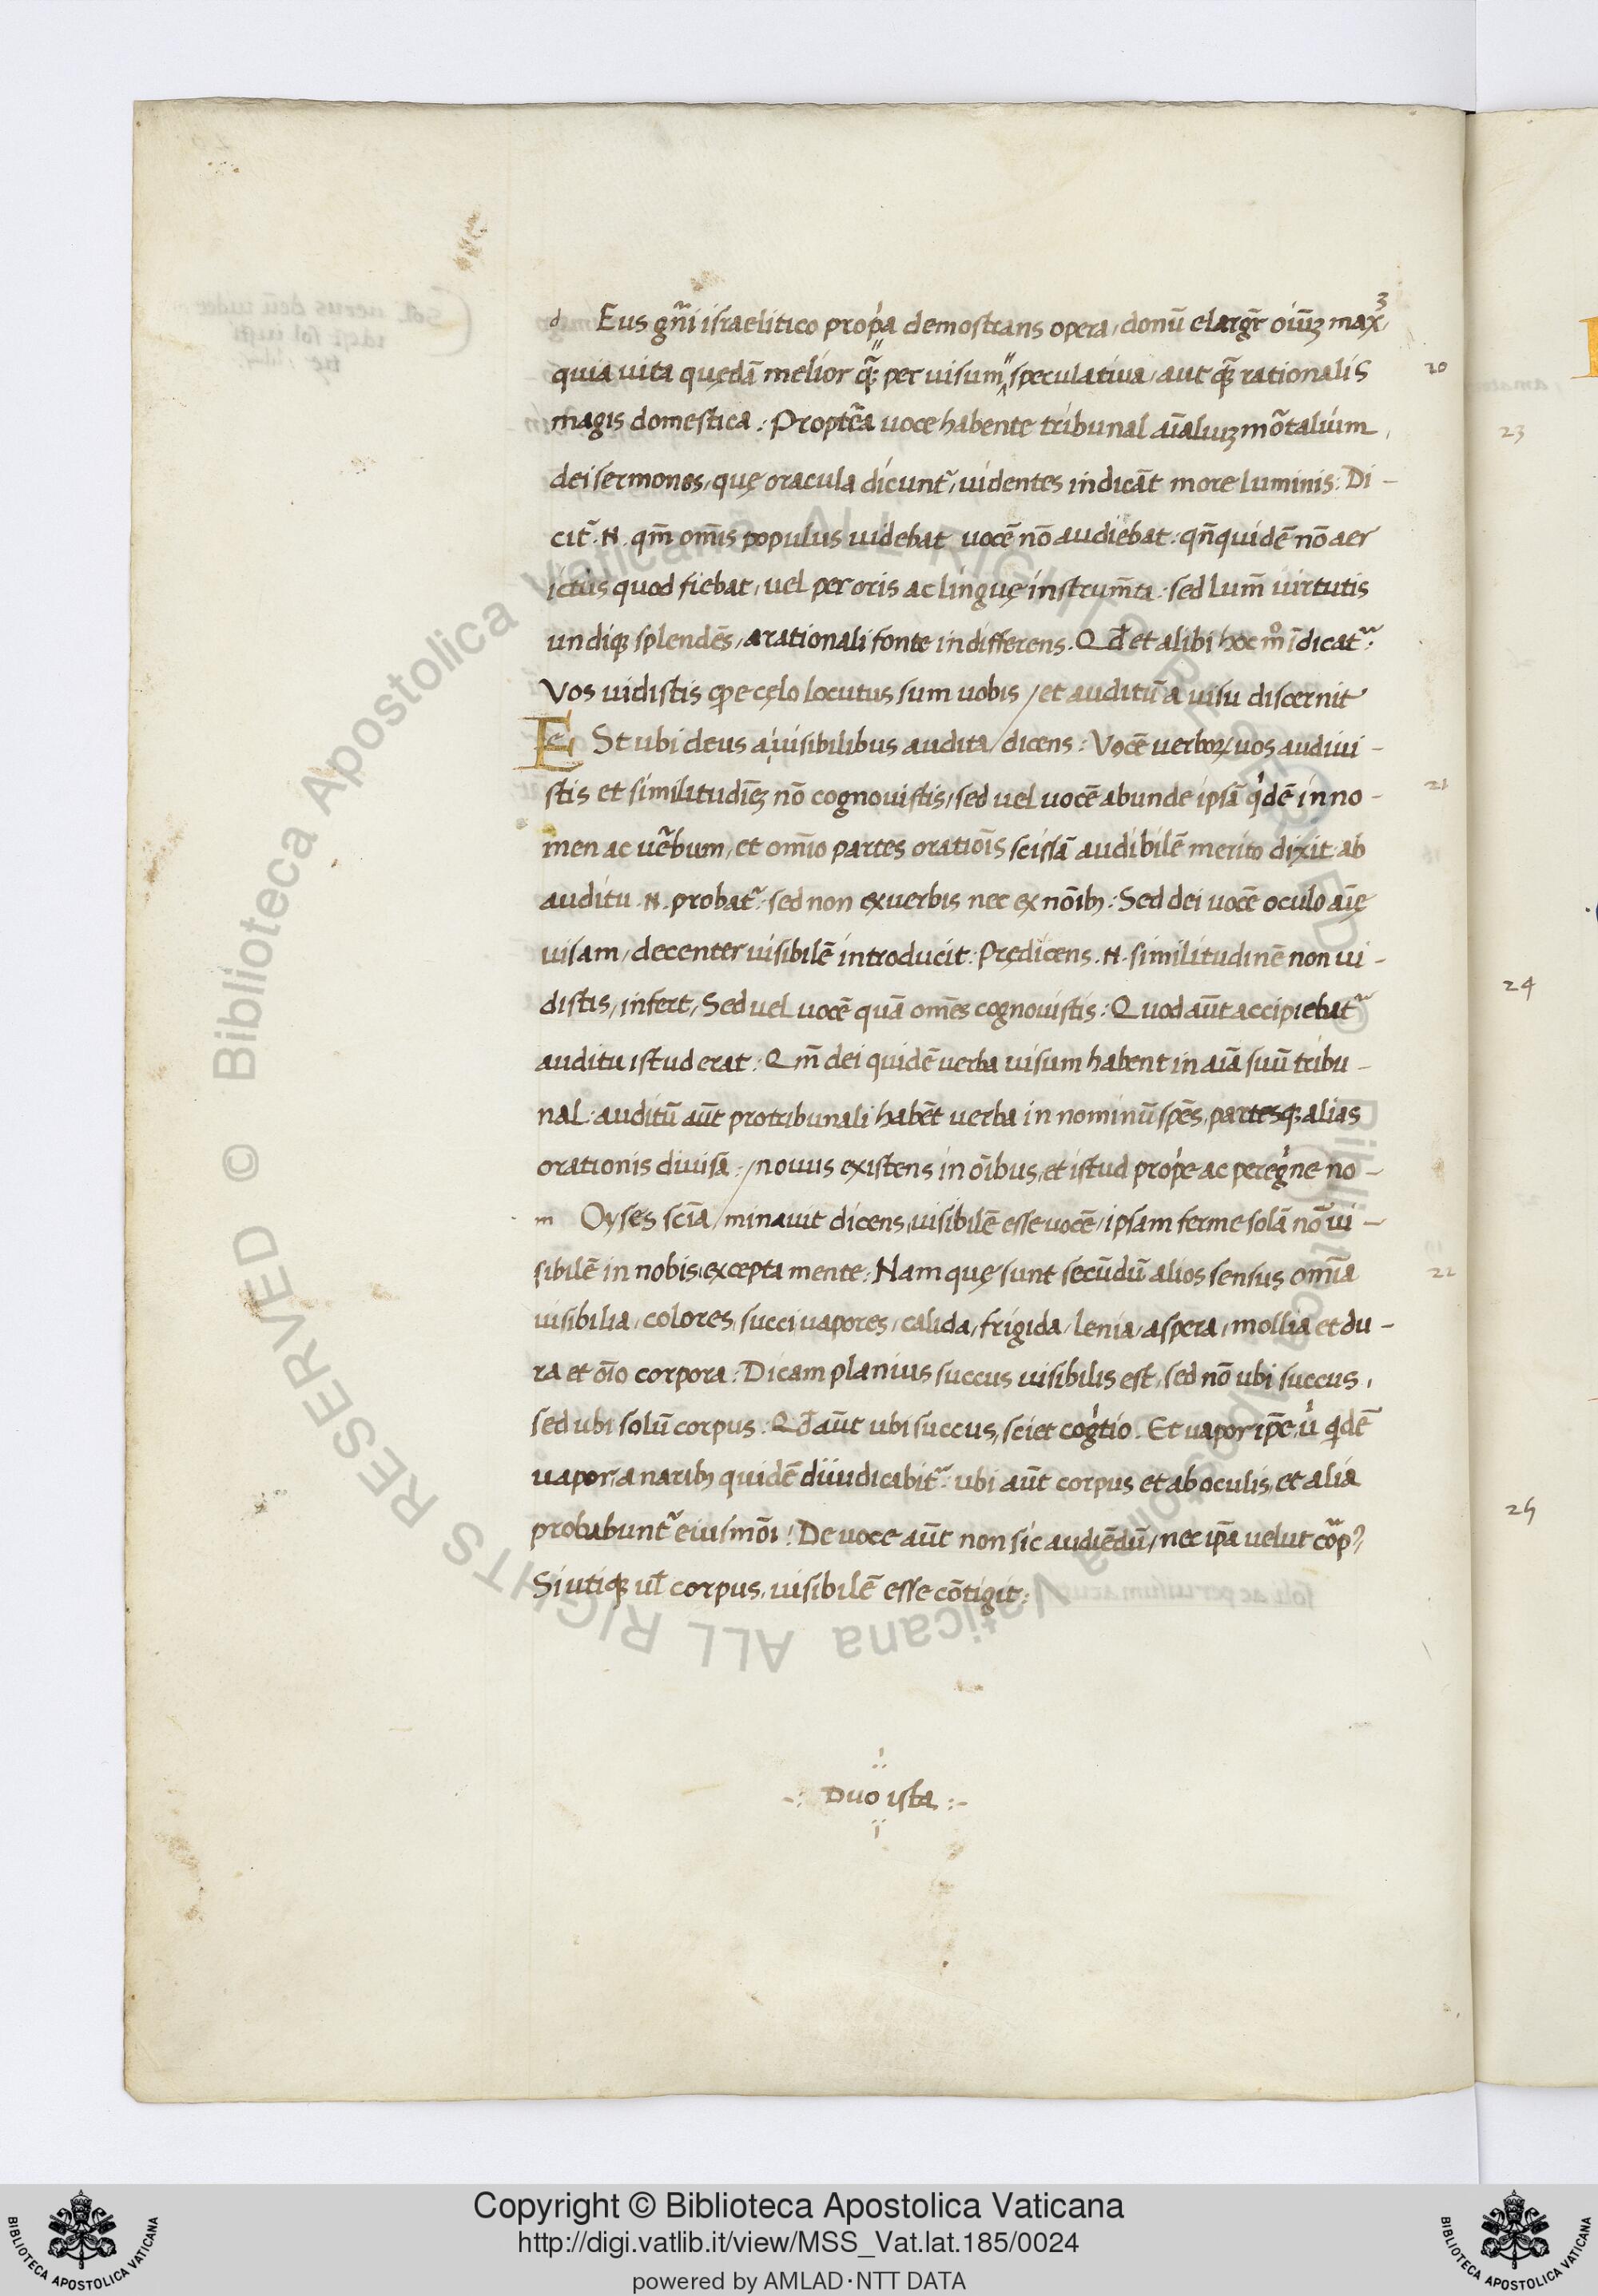 d Eus gñi israelitico prop̍a demostrans opera, donũ elargr̃ oíũꝫ max,ꝫ
quia uita quędã melior q̃ꝫ: per uisum speculatiua, aut q̃ꝫ rationalis 20
magis domestica: Proptẽa uoce habente tribunal aĩaliuꝫ mõtalium,
dei sermones, quę oracula dicunt᷒, uidentes indicãt more luminis: Di-
cit᷒. N. qm̃ om̃is populus uidebat uocẽ nõ audiebat: qñ quidẽ nõ aer
ictus quod fiebat, uel per oris ac linguę instrum̃ta: sed lum̃ uirtutis
undiqꝫ splendẽs, a rationali fonte indifferens. Qđ et alibi hoc m̊ ĩdicat᷒:
Vos uidistis ꝙ e cęlo locutus sum uobis / et auditũ a uisu discernit
E St ubi deus a uisibilibus audita / dicens: Vocẽ uerboꝝ uos audiui-
stis et similitudĩeꝫ nõ cognouistis, sed uel uocẽ abunde ipsã q̍dẽ in no- 21
men ac uẽbum, et om̃io partes oratiõis scissã audibilẽ merito dixit ab
auditu. N. probat᷒: sed non ex uerbis nec ex nõibꝫ: Sed dei uocẽ oculo aĩę
uisam, decenter uisibilẽ introducit: Prędicens. N. similitudinẽ non ui-
distis, infert, Sed uel uocẽ quã om̃es cognouistis: Quod aũt accipiebat᷒
auditu istud erat: Qm̃ dei quidẽ uerba uisum habent in aĩa suũ tribu-
nal: auditũ aũt pro tribunali habẽt uerba in nominũ spẽs, partesqꝫ alias
orationis diuisã: / nouus existens in õibus, et istud prop̍e ac pereg̍ne no-
m Oyses scĩa / minauit dicens, uisibilẽ esse uocẽ, ipsam ferme solã nõ ui-
sibilẽ in nobis, excepta mente: Nam quę sunt secũdũ alios sensus om̃ia 22
uisibilia, colores, succi, uapores, calida, frigida, lenia, aspera, mollia et du-
ra et õio corpora: Dicam planius succus uisibilis est, sed nõ ubi succus,
sed ubi solũ corpus: Qđ aũt ubi succus, sciet cog̍tio. Et uapor ip̃e, u̍ q̍dẽ
uapor, a naribꝫ quidẽ diiudicabit᷒: ubi aũt corpus et ab oculis, et alia
probabunt᷒ eiusmõi: De uoce aũt non sic audiẽdũ, nec ip̃a uelut cõp᷒,
Si utiqꝫ ul̃ corpus, uisibilẽ esse cõtigit:
-: Duo ista :-
23
24
25
Copyright © Biblioteca Apostolica Vaticana
http://digi.vatlib.it/view/MSS_Vat.lat.185/0024
powered by AMLAD·NTT DATA
BIBLIOTECA APOSTOLICA VATICANA
BIBLIOTECA APOSTOLICA VATICANA